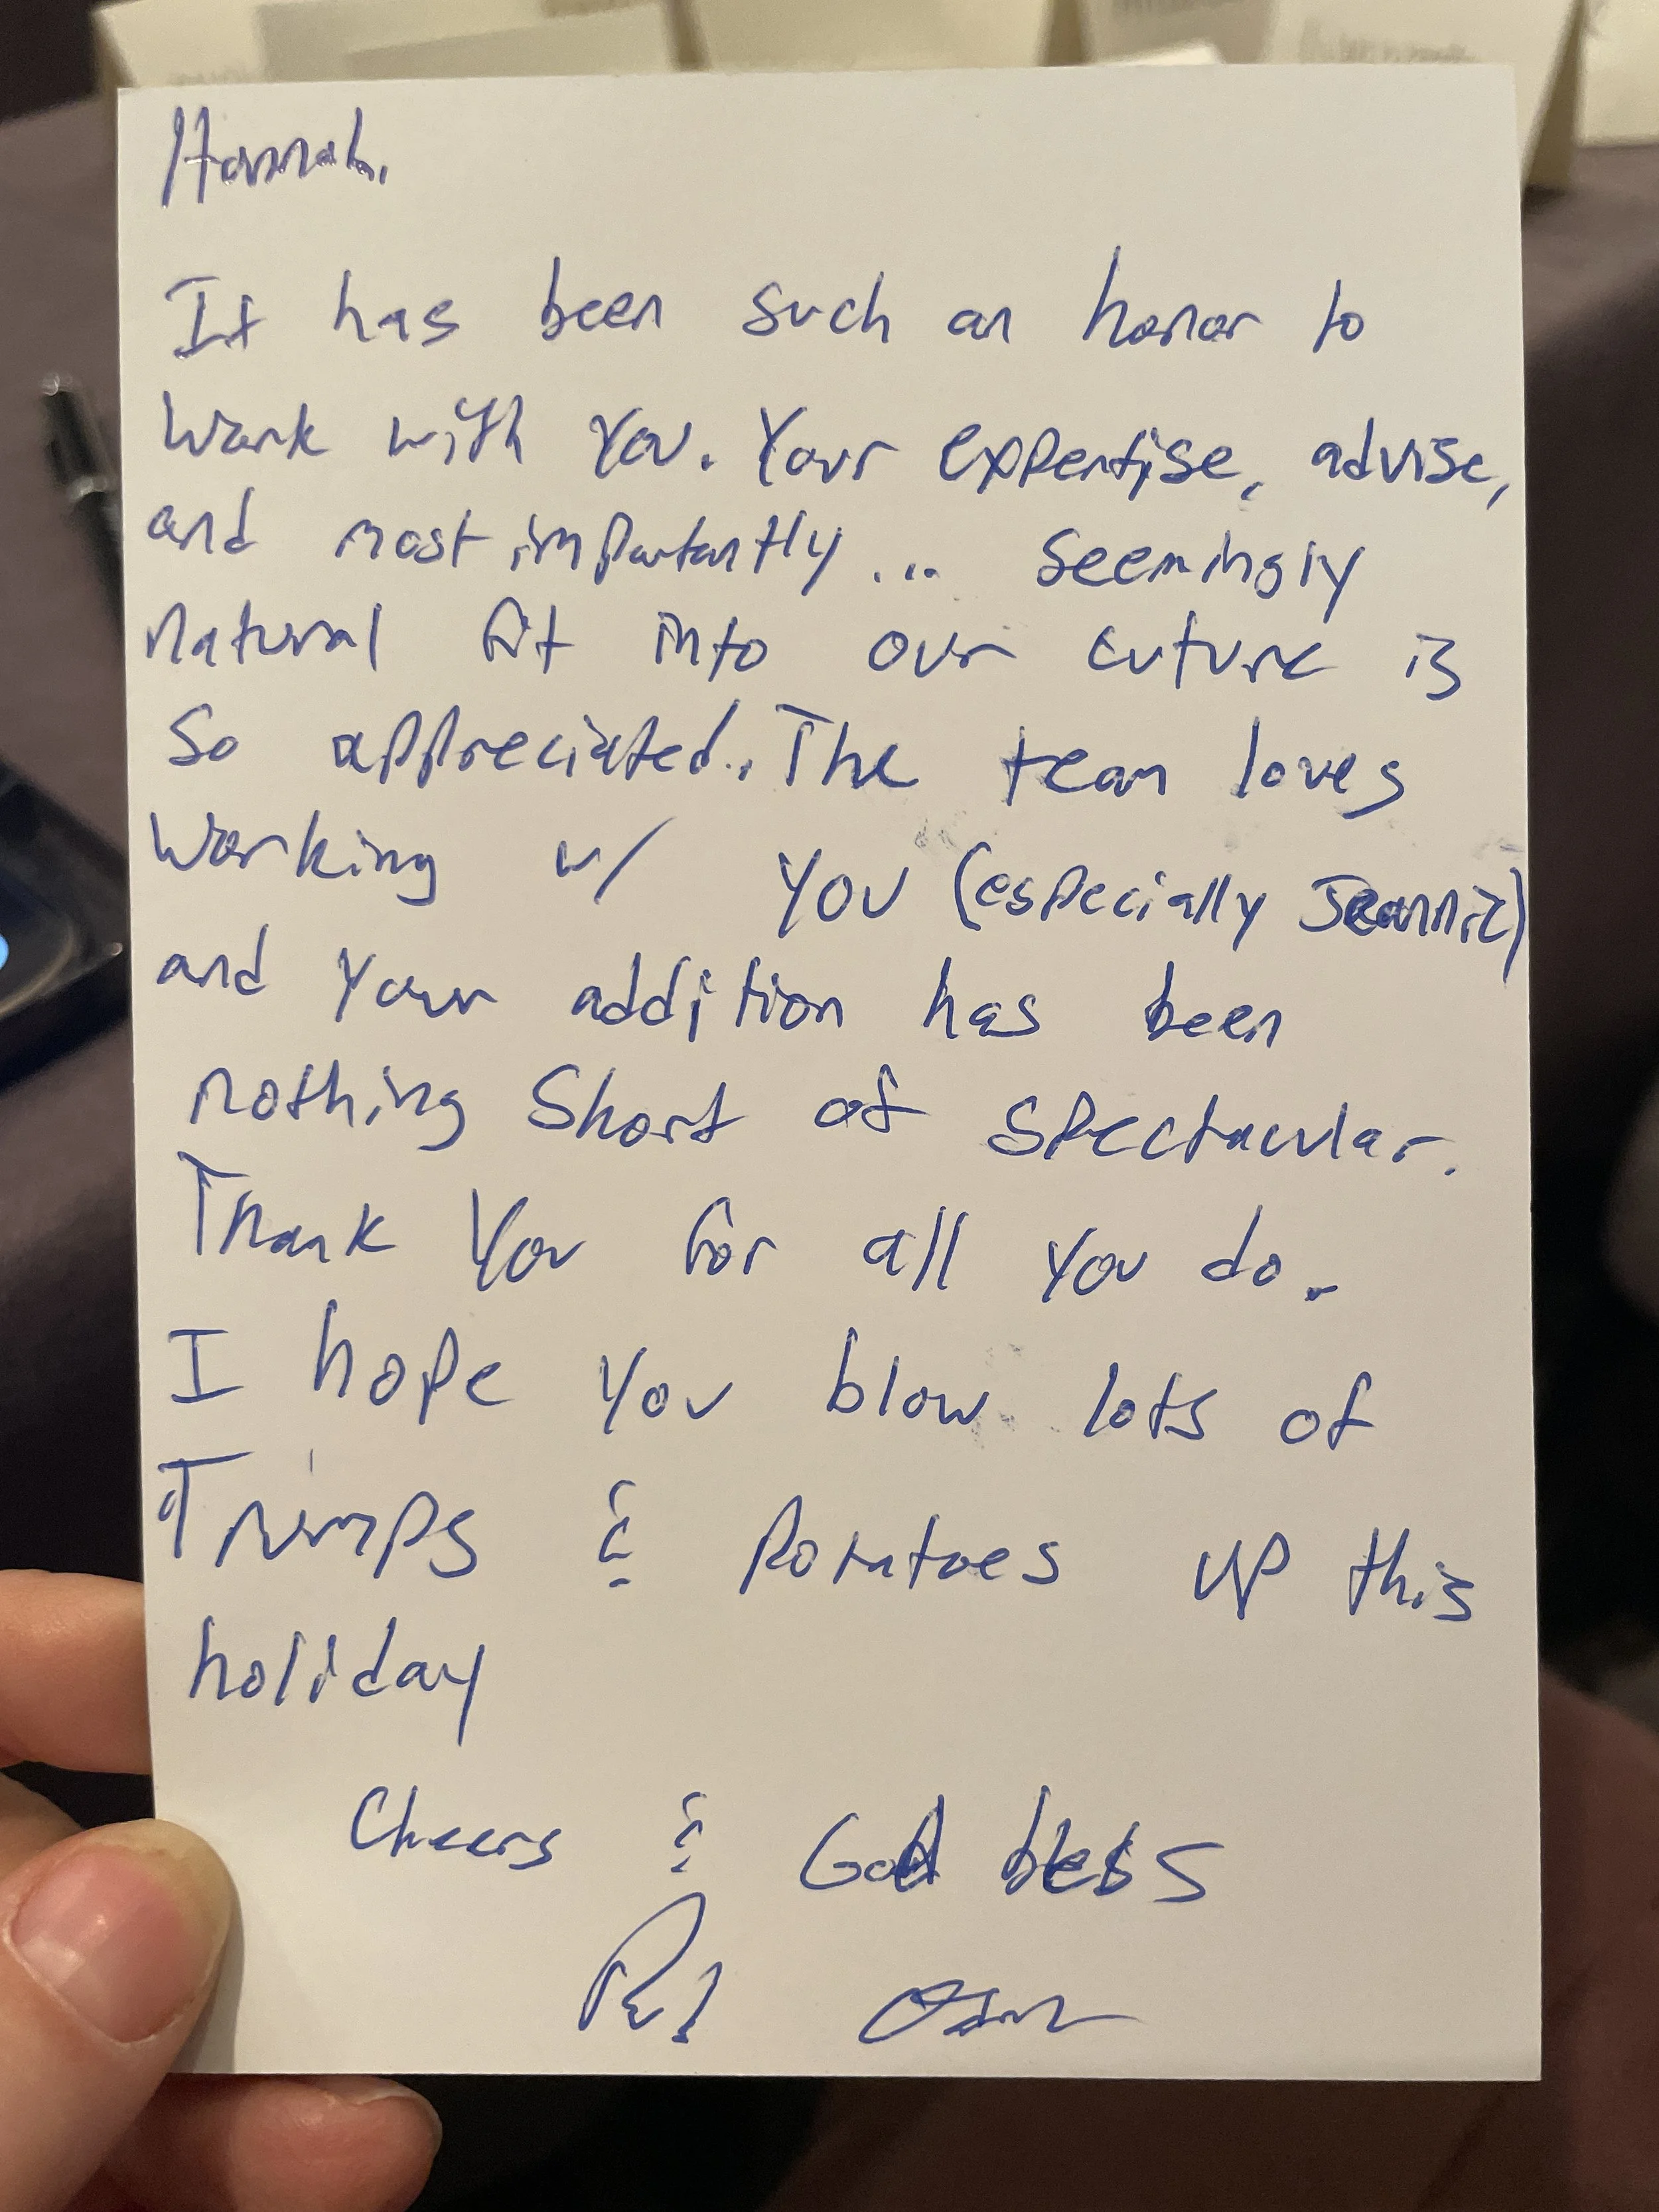 Hannah.
It has been such an honor to
work with you. Your expertise, advise,
and most importantly... seemingly
natural fit into our cuture is
so appreciated. The team loves
working w/ you (especially Jeannie)
and your addition has been
nothing short of spectacular.
Thank you for all you do.
I hope you blow lots of
& Potatoes up this
holiday
Cheers & God bless